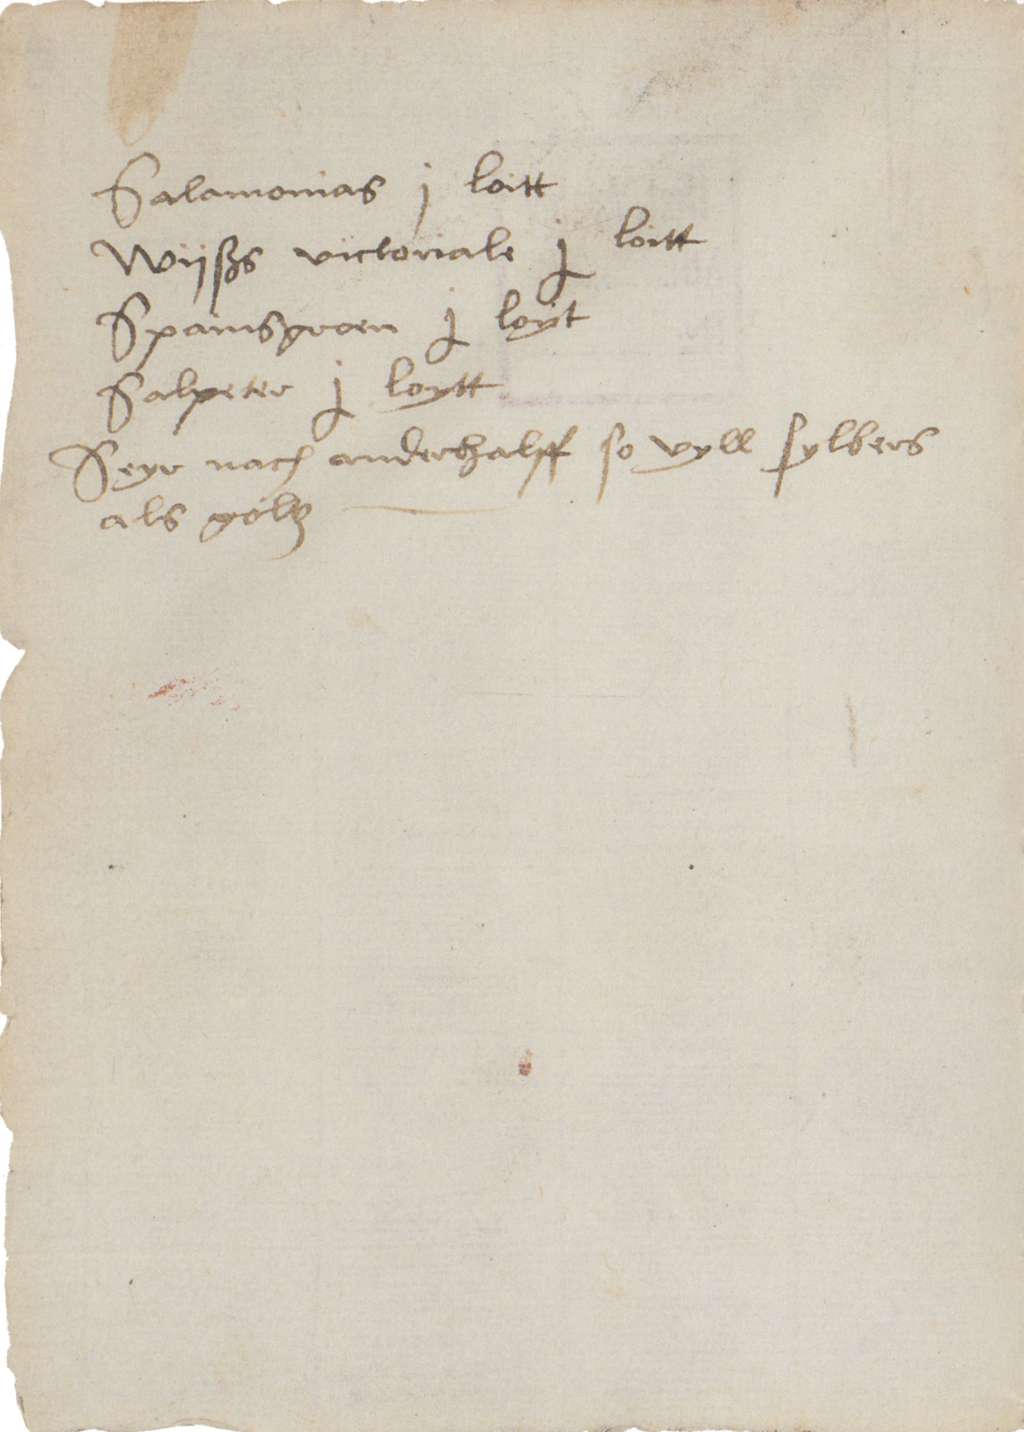 Salamonias j loitt
Wijßs victoriale j loitt
Spainsgroen j loyt
Salpeter j loytt
Seyr nach anderhalff so vyll sylbers
als goltz